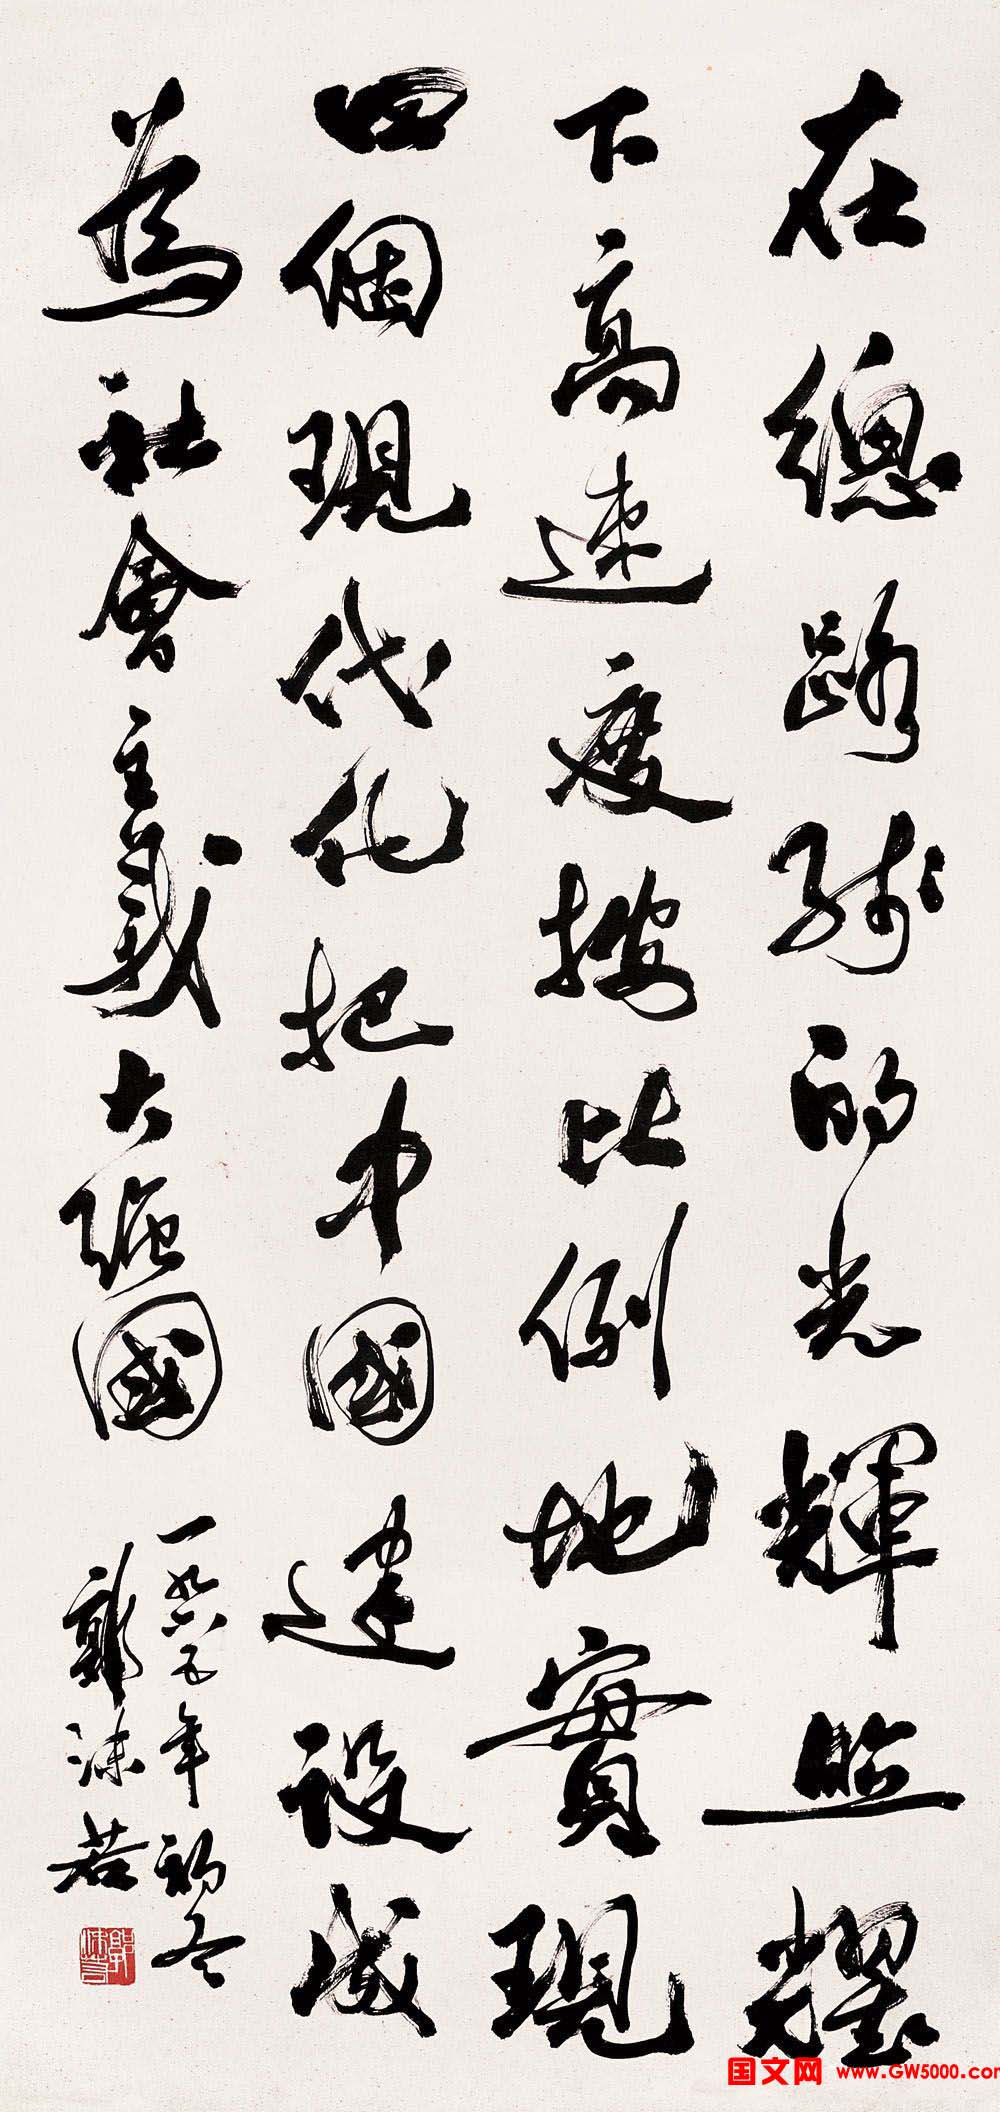 在總路线的光輝照耀
下高速度按比例地實現
四個現代化把中國建設成
為社會主義大强國
一九六五年初冬
郭沫若
郭沫若
国文网 www.GW5000.com